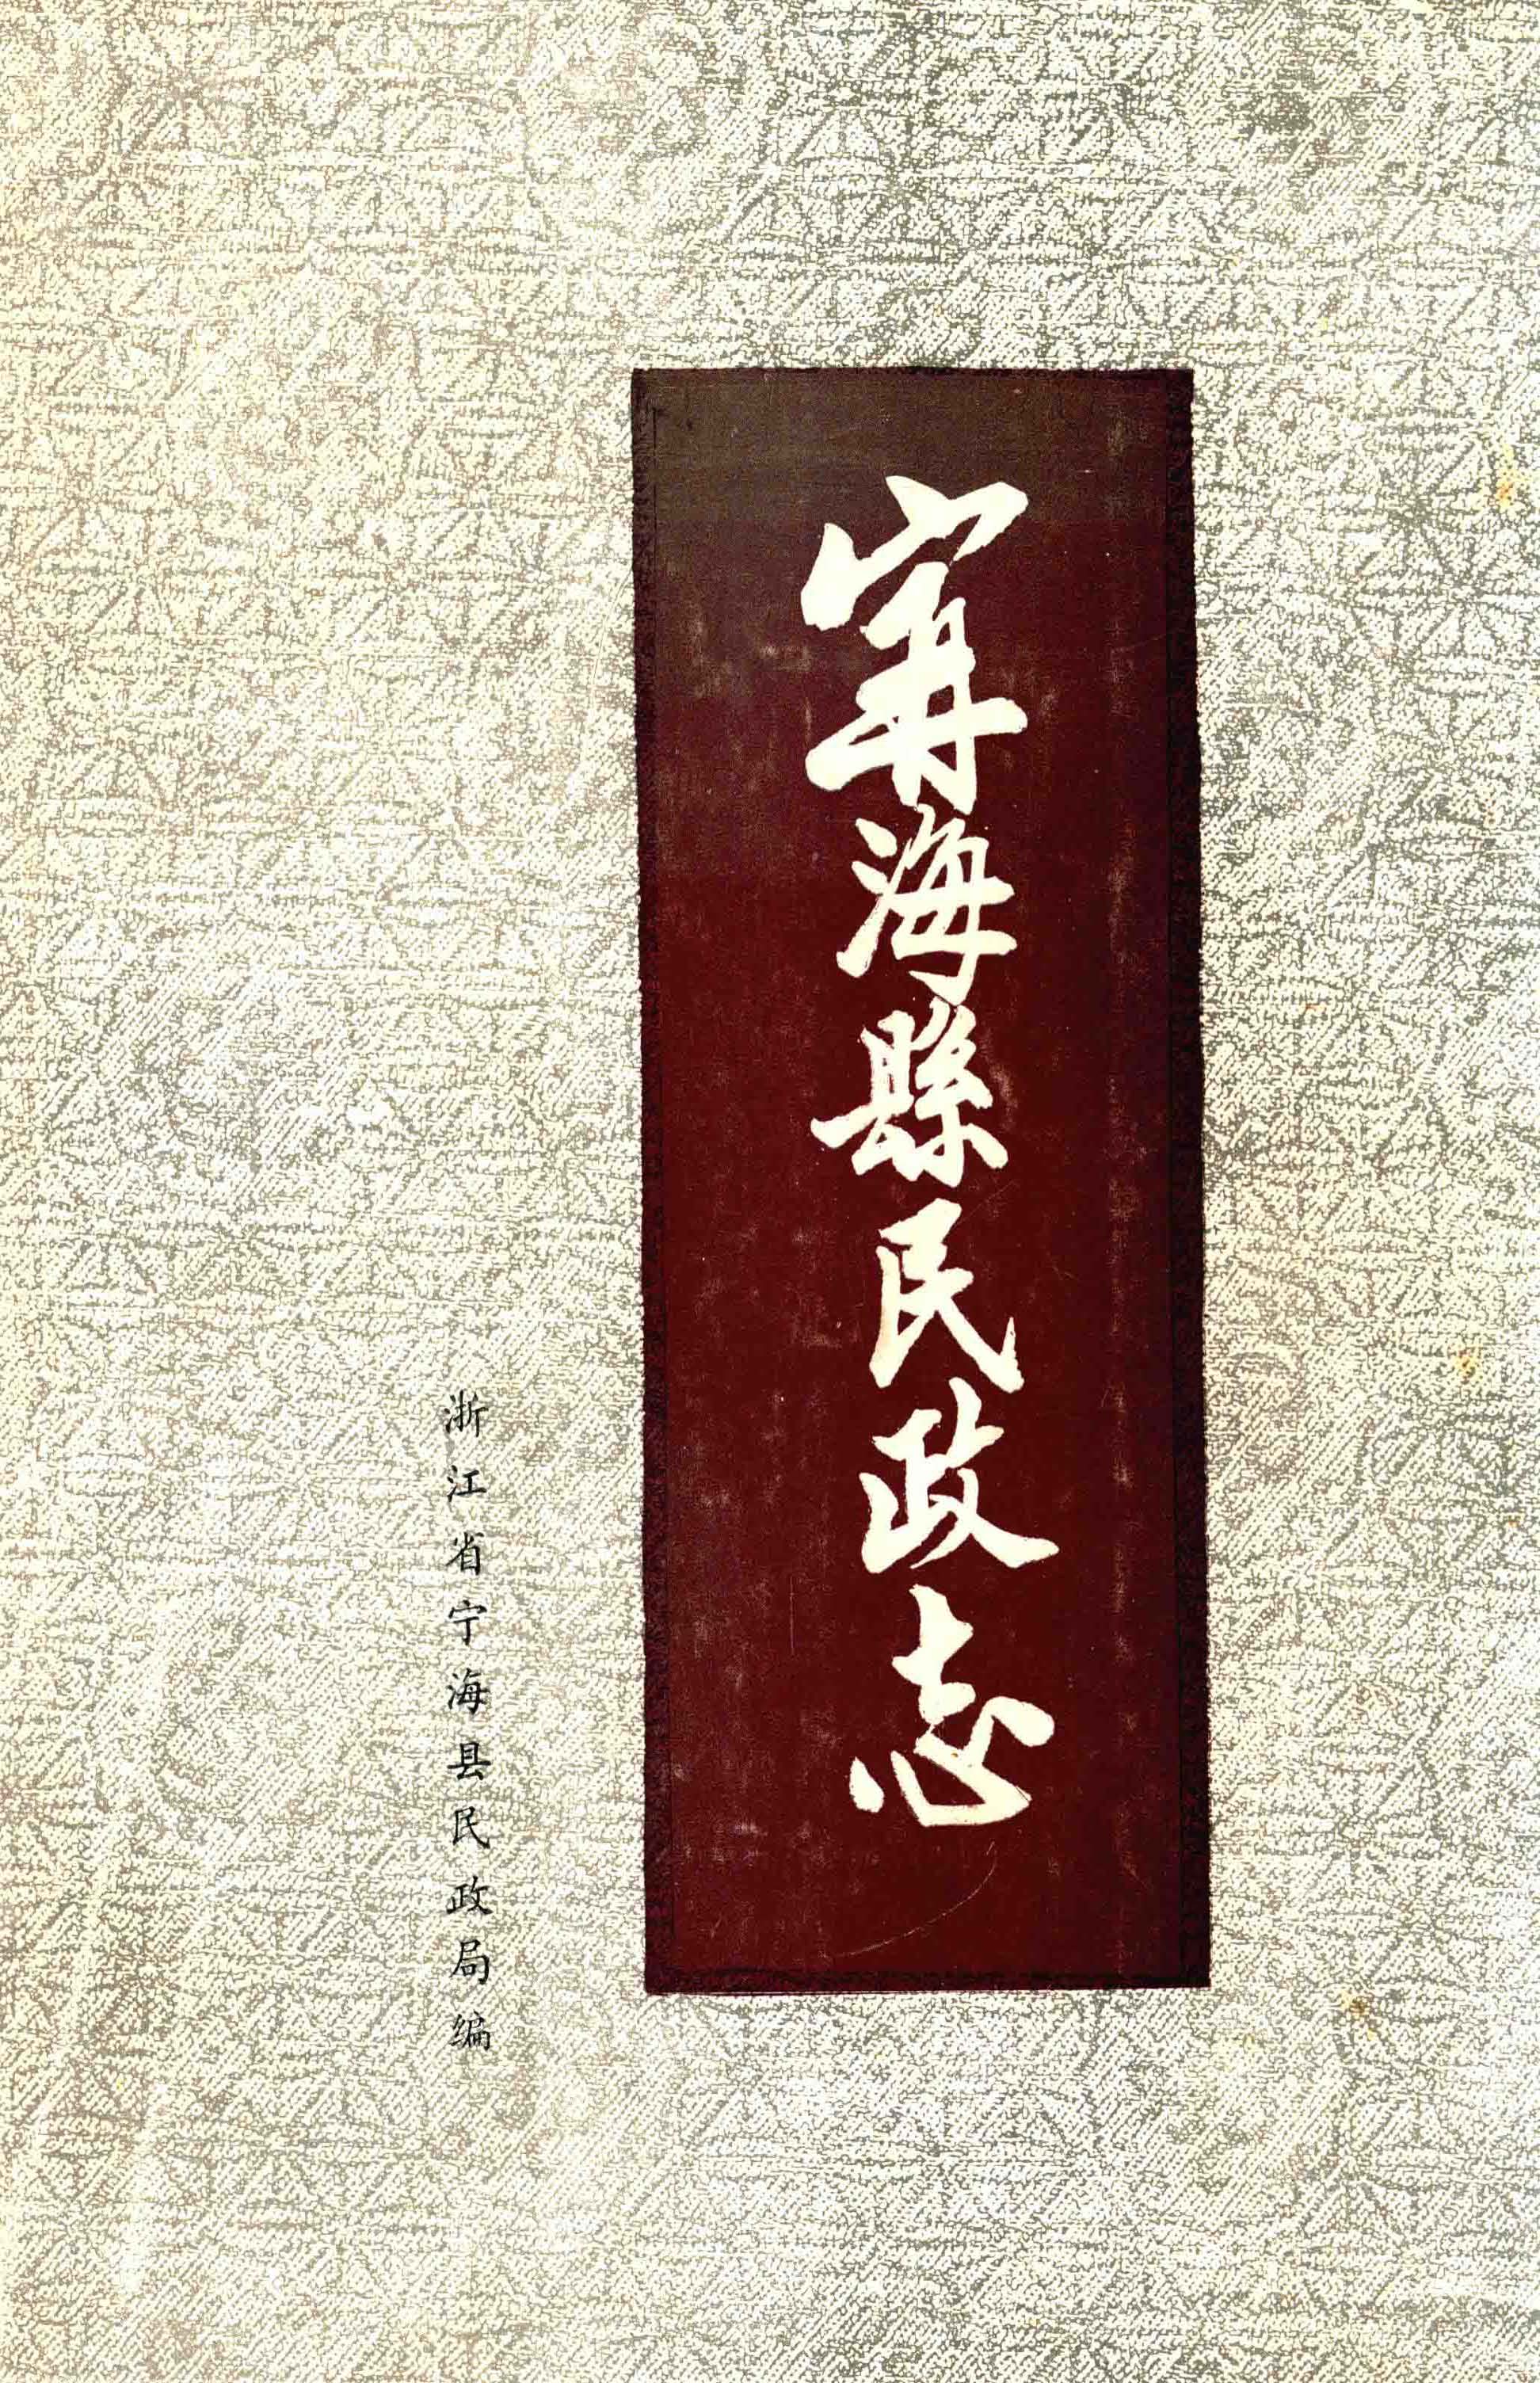 寗海縣民政志
浙江省宁海县民政局编